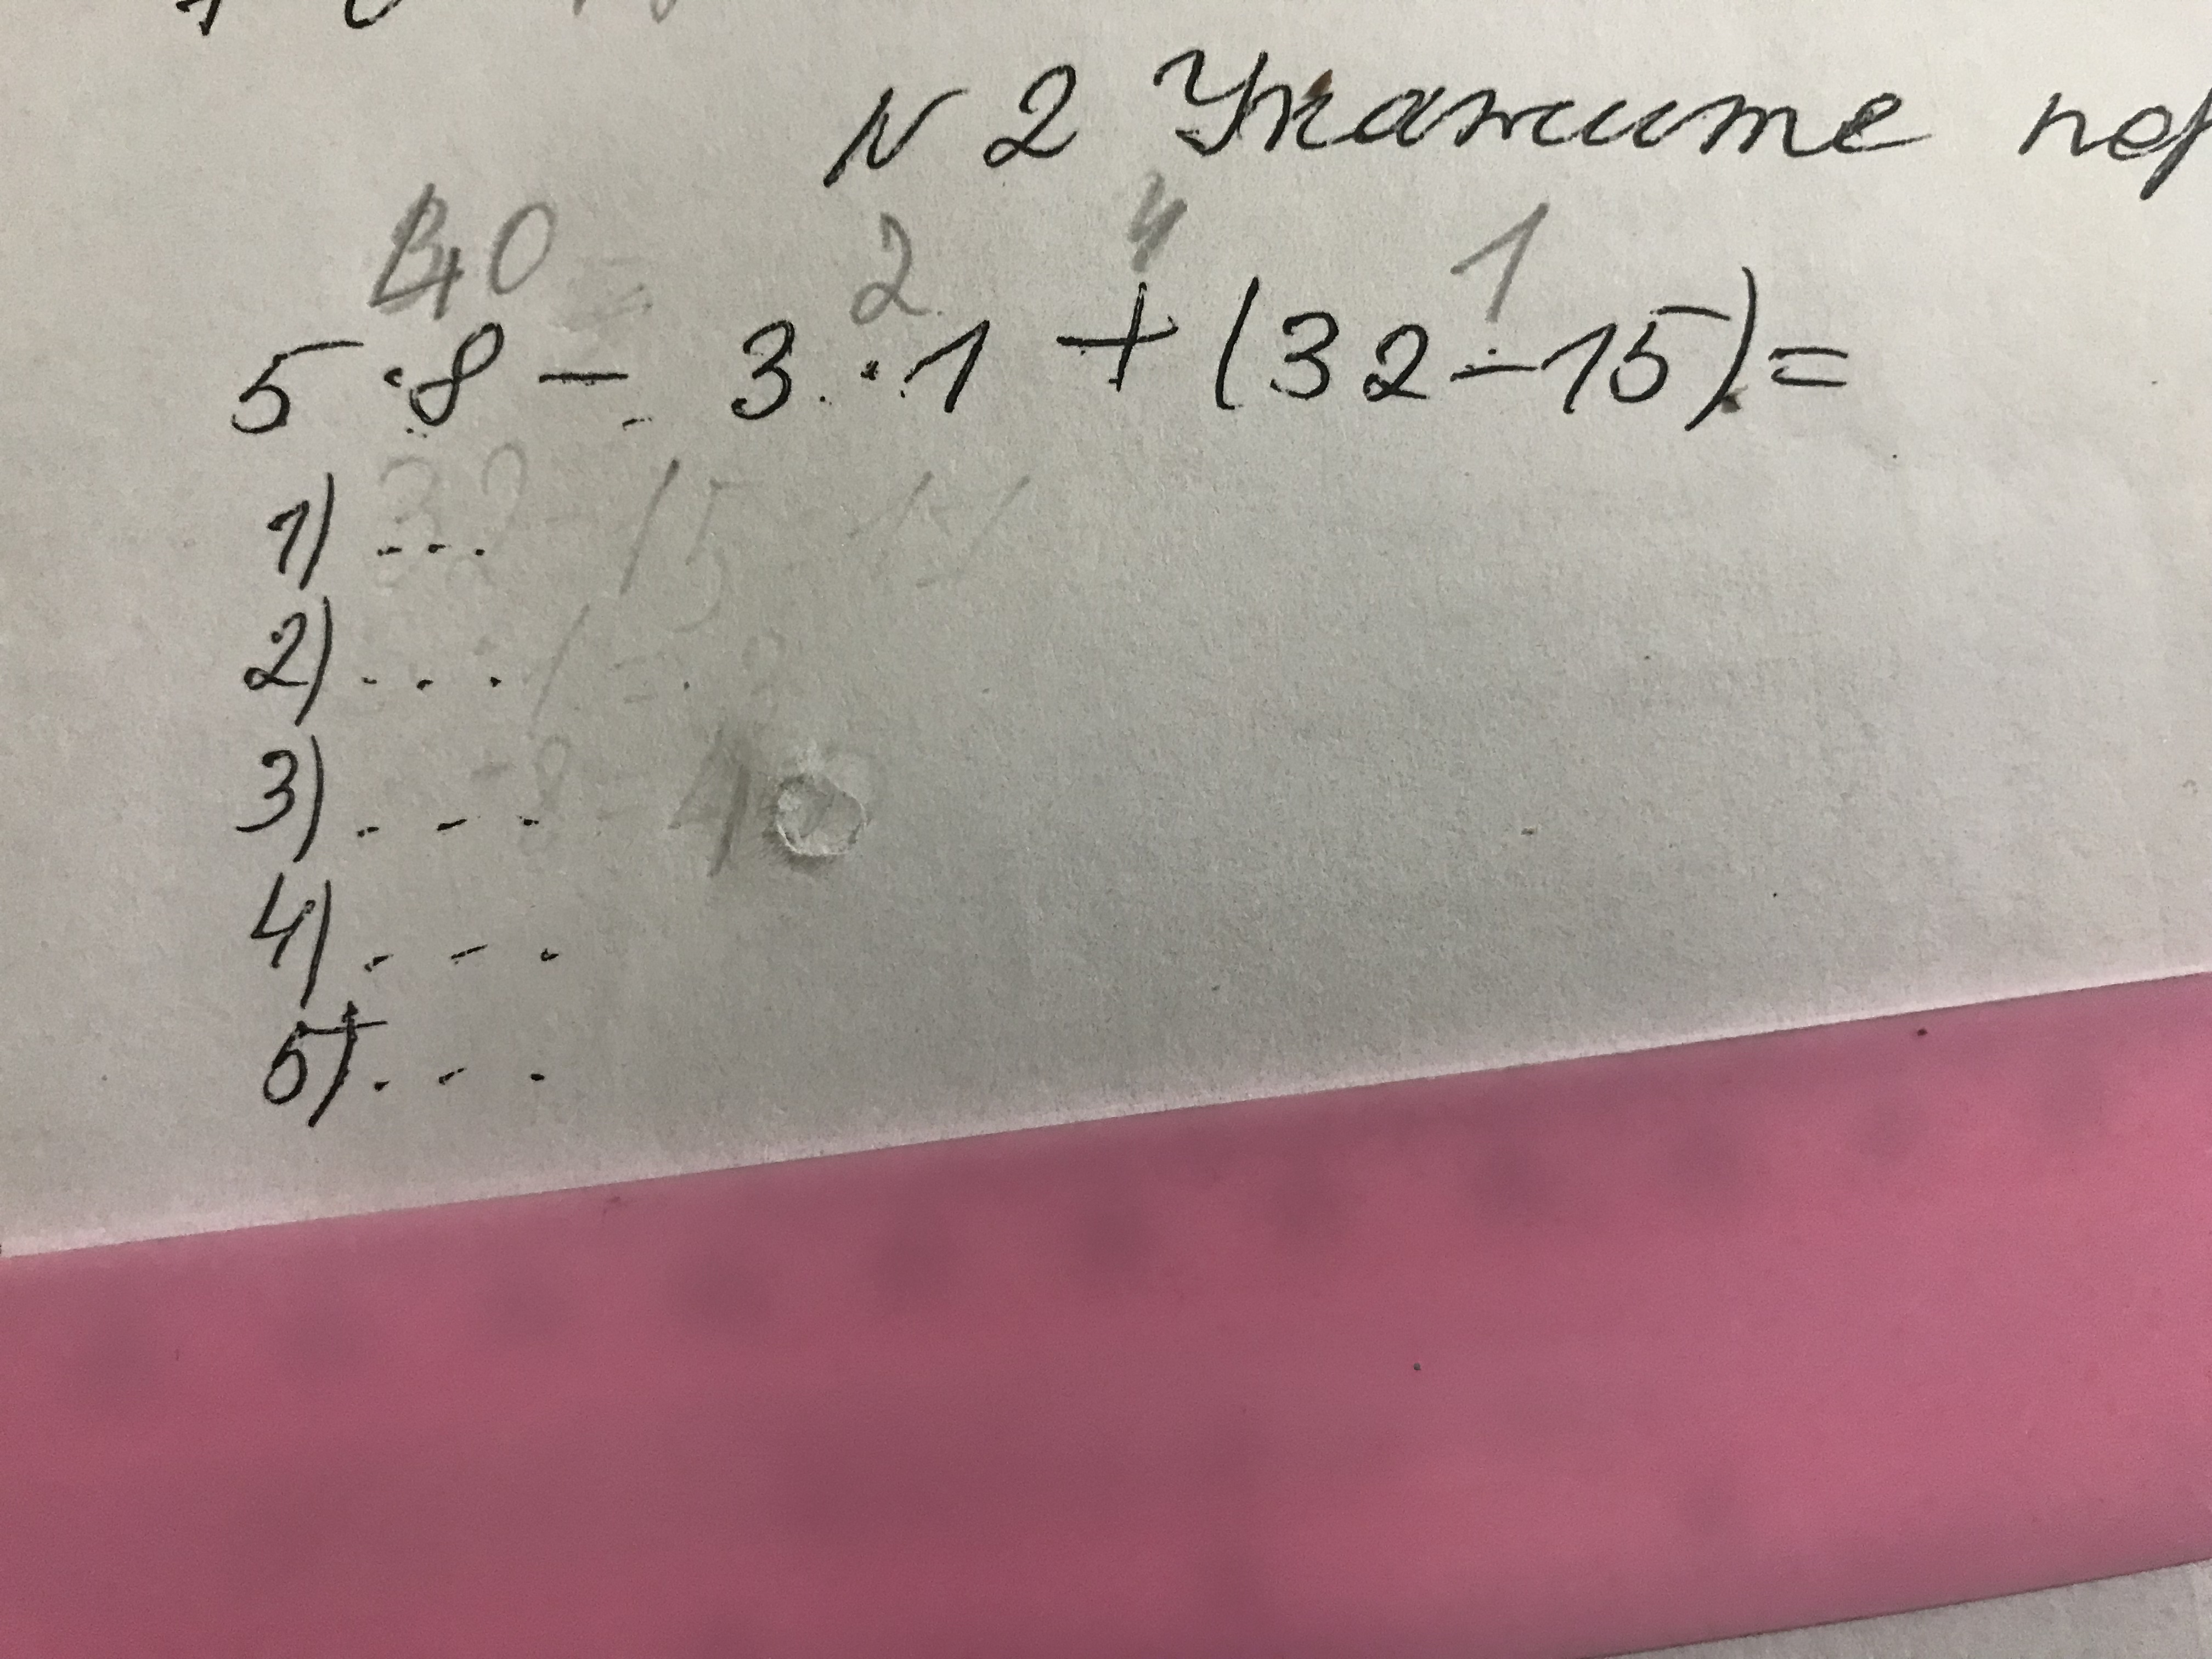 № 2 Укажите пор
40 2 4 1
5 · 8 - 3 · 1 + (32 - 15) =
1) ... 32 - 15 = 17
2) ...
3) ... 8 = 40
4) ...
5) ...